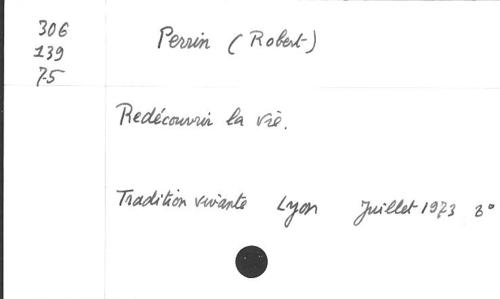 306
139
75
Perrin (Robert)
Redécouvrir la vie.
Tradition vivante Lyon Juillet 1973 8°